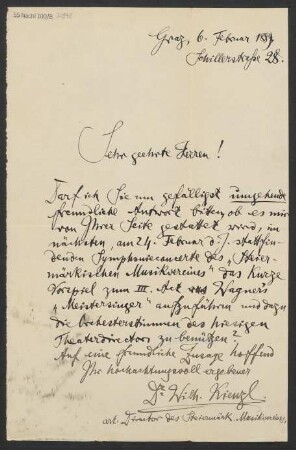 Graz, 6. Februar 1889
Schillerstraße 28.
Sehr geehrte Herren!
Darf ich Sie um gefälligst umgehende
freundliche Antwort bitten, ob es mir
von Ihrer Seite gestattet wird, im
nächsten, am 24. Februar d. J. stattfin-
denden Symphonieconcerte des „Steier-
märkischen Musikvereines" das kurze
Vorspiel zum III. Act von Wagners
„Meistersinger" aufzuführen und dazu
die Orchesterstimmen des hiesigen
Theaterdirectors zu benützen?
Auf eine freundliche Zusage hoffend
Ihr hochachtungsvoll ergebener
Dr. Wilh. Kienzl
art. Director des Steiermärk. Musikvereines.